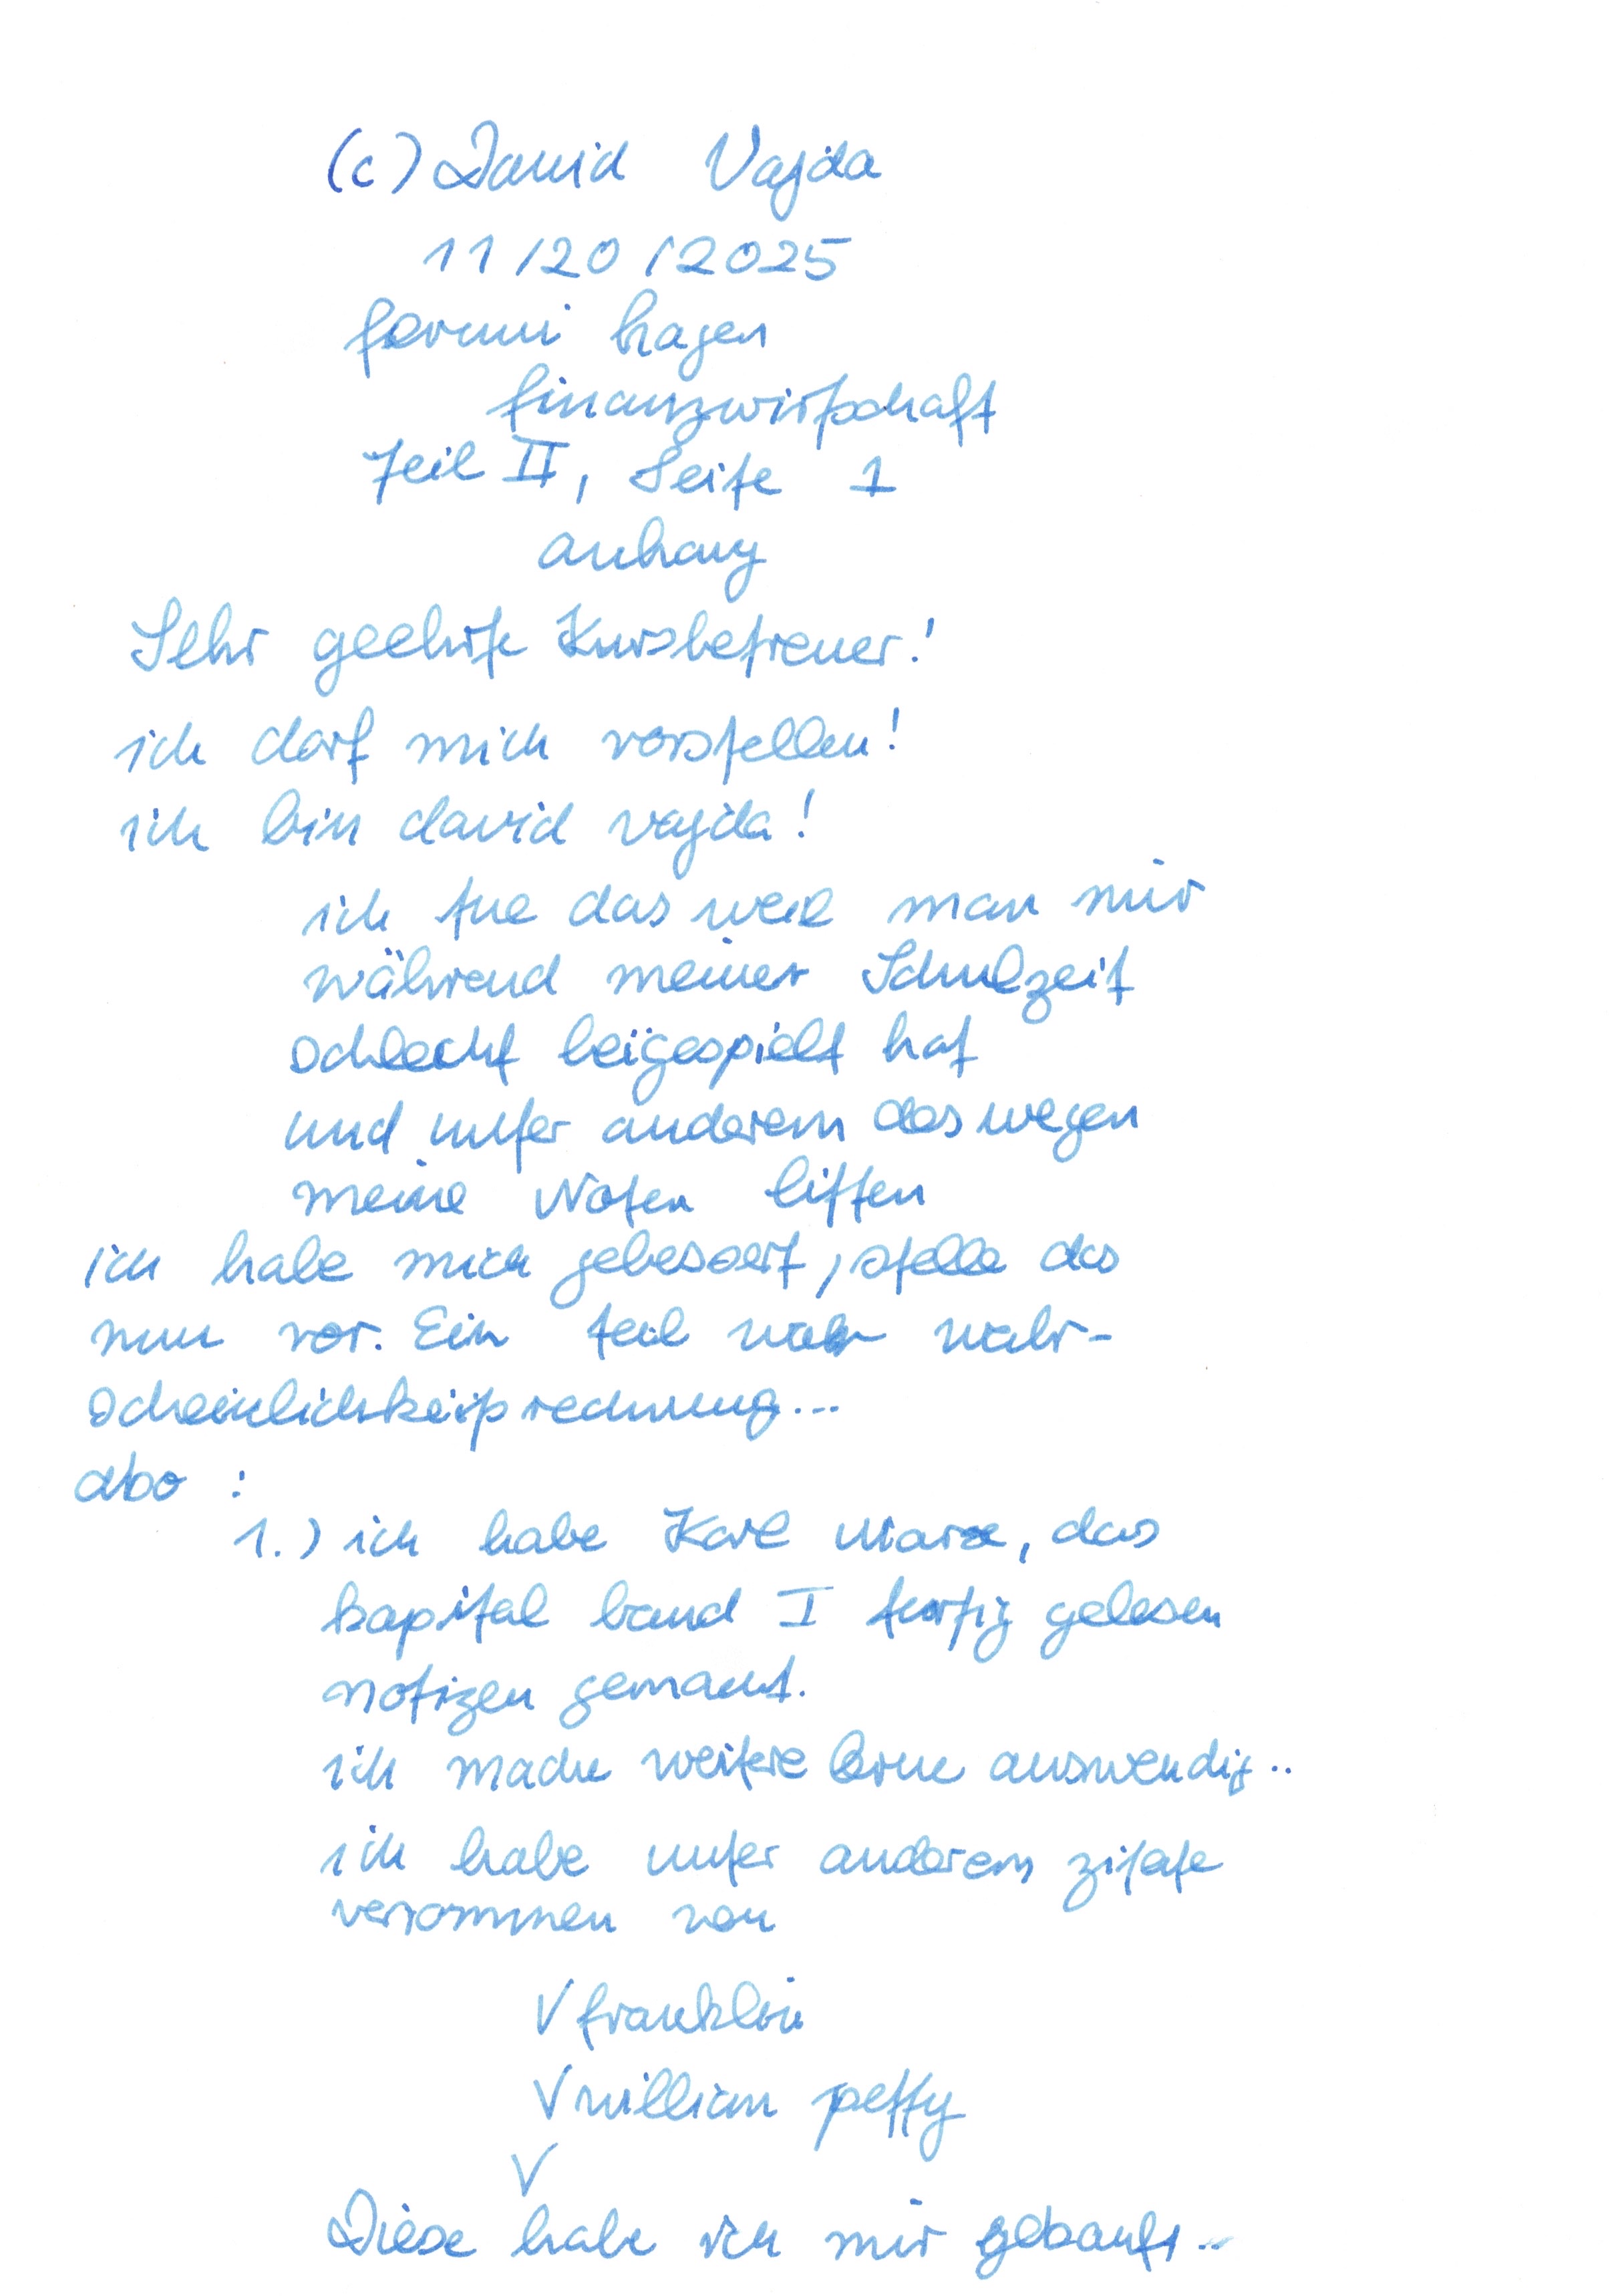 (c) David Vajda
11/20/2025
fernuni hagen
finanzwirtschaft
Teil II, Seite 1
anhang
Sehr geehrte Kursbetreuer!
ich darf mich vorstellen!
ich bin david vajda!
ich tue das weil man mir
während meiner Schulzeit
schlecht beigespielt hat
und unter anderem deswegen
meine Noten litten
ich habe mich gebessert, stelle das
nun vor. Ein teil war wahr-
scheinlichkeitsrechnung...
also :
1.) ich habe Karl Marx, das
kapital band I fertig gelesen
notizen gemacht.
ich mache weitere lerne auswendig..
ich habe unter anderem zitate
vernommen von
V franklin
V william petty
V
Diese habe ich mir gekauft..